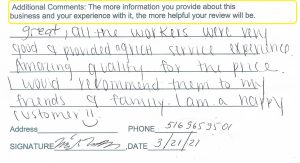 Additional Comments: The more information you provide about this
business and your experience with it, the more helpful your review will be.
great, all the workers were very
good & provided a great service experience
Amazing quality for the price.
I would recommend them to my
friends & family. I am a happy
customer!!
Address PHONE 5169659501
SIGNATURE ,DATE 3/21/21